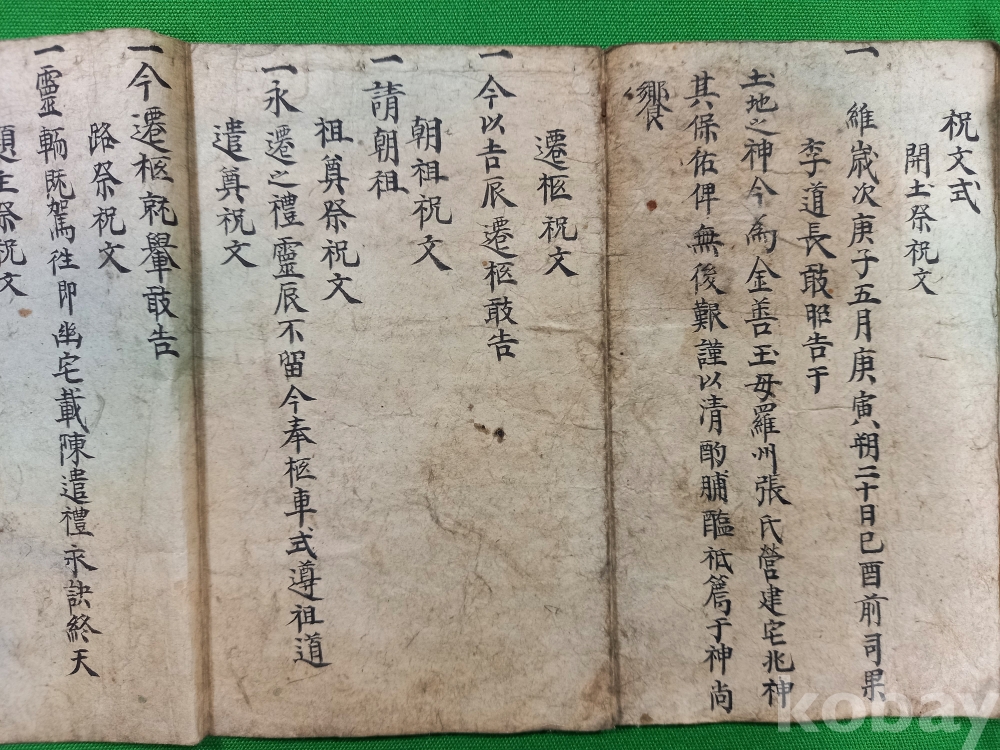 祝文式
開土祭祝文
一 維歲次庚子五月庚寅朔二十日己酉前司果
李道長敢昭告于
土地之神今爲金善玉母羅州張氏營建宅兆神
其保佑俾無後艱謹以淸酌脯醢祗薦于神尙
饗
遷柩祝文
一 今以吉辰遷柩敢告
朝祖祝文
一 請朝祖
祖奠祭祝文
一 永遷之禮靈辰不留今奉柩車式遵祖道
遣奠祝文
一 今遷柩就轝敢告
路祭祝文
一 靈輀旣駕往卽幽宅載陳遣禮永訣終天
題主祭祝文
kobay